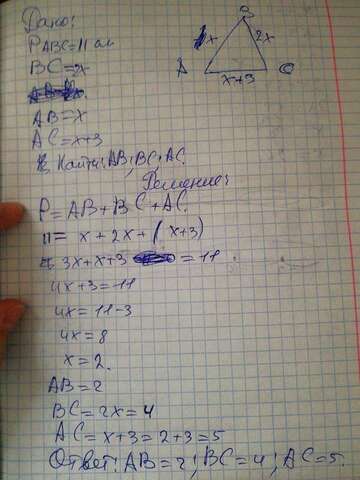 Дано:
P ABC = 11 см
BC = 2x
AB = x
AC = x+3
Найти: AB; BC; AC.
B
x
2x
A
x+3
C
Решение:
P = AB + BC + AC.
11 = x + 2x + (x+3)
3x + x + 3 = 11
4x + 3 = 11
4x = 11 - 3
4x = 8
x = 2.
AB = 2
BC = 2x = 4
AC = x+3 = 2+3 = 5
Ответ: AB = 2; BC = 4; AC = 5.